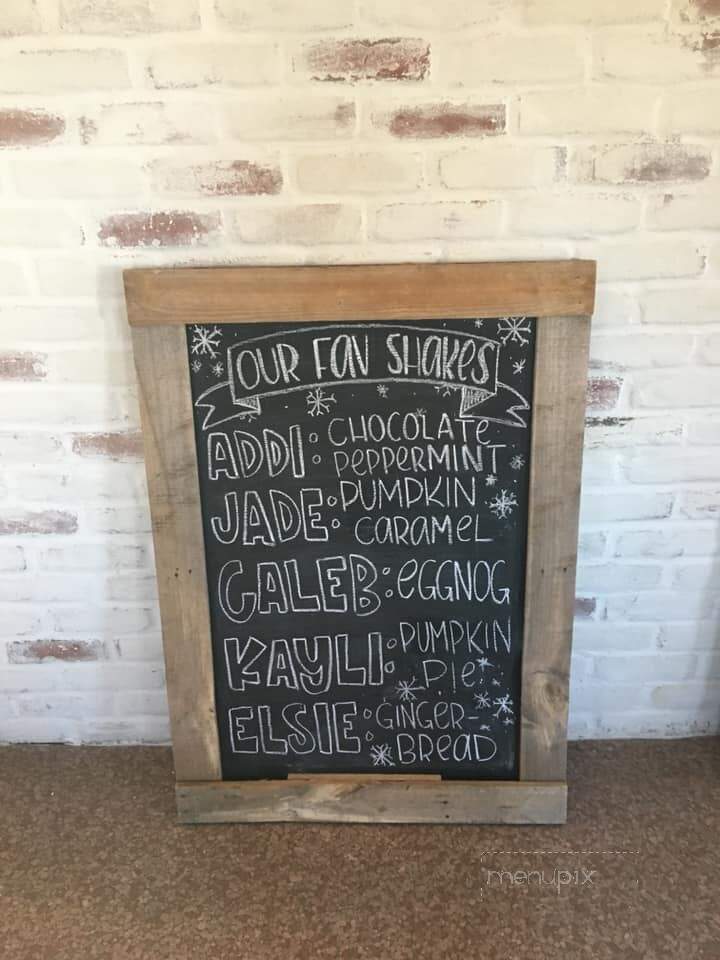 OUR FAV SHAKES
ADDI: CHOCOLATE
PEPPERMINT
JADE: PUMPKIN
CARAMEL
CALEB: EGGNOG
KAYLI: PUMPKIN
PIE
ELSIE: GINGER-
BREAD
menupix